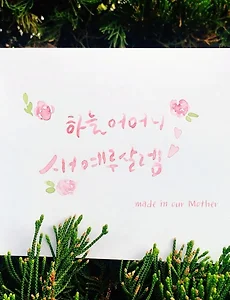 하늘어머니
새예루살렘
made in our Mother